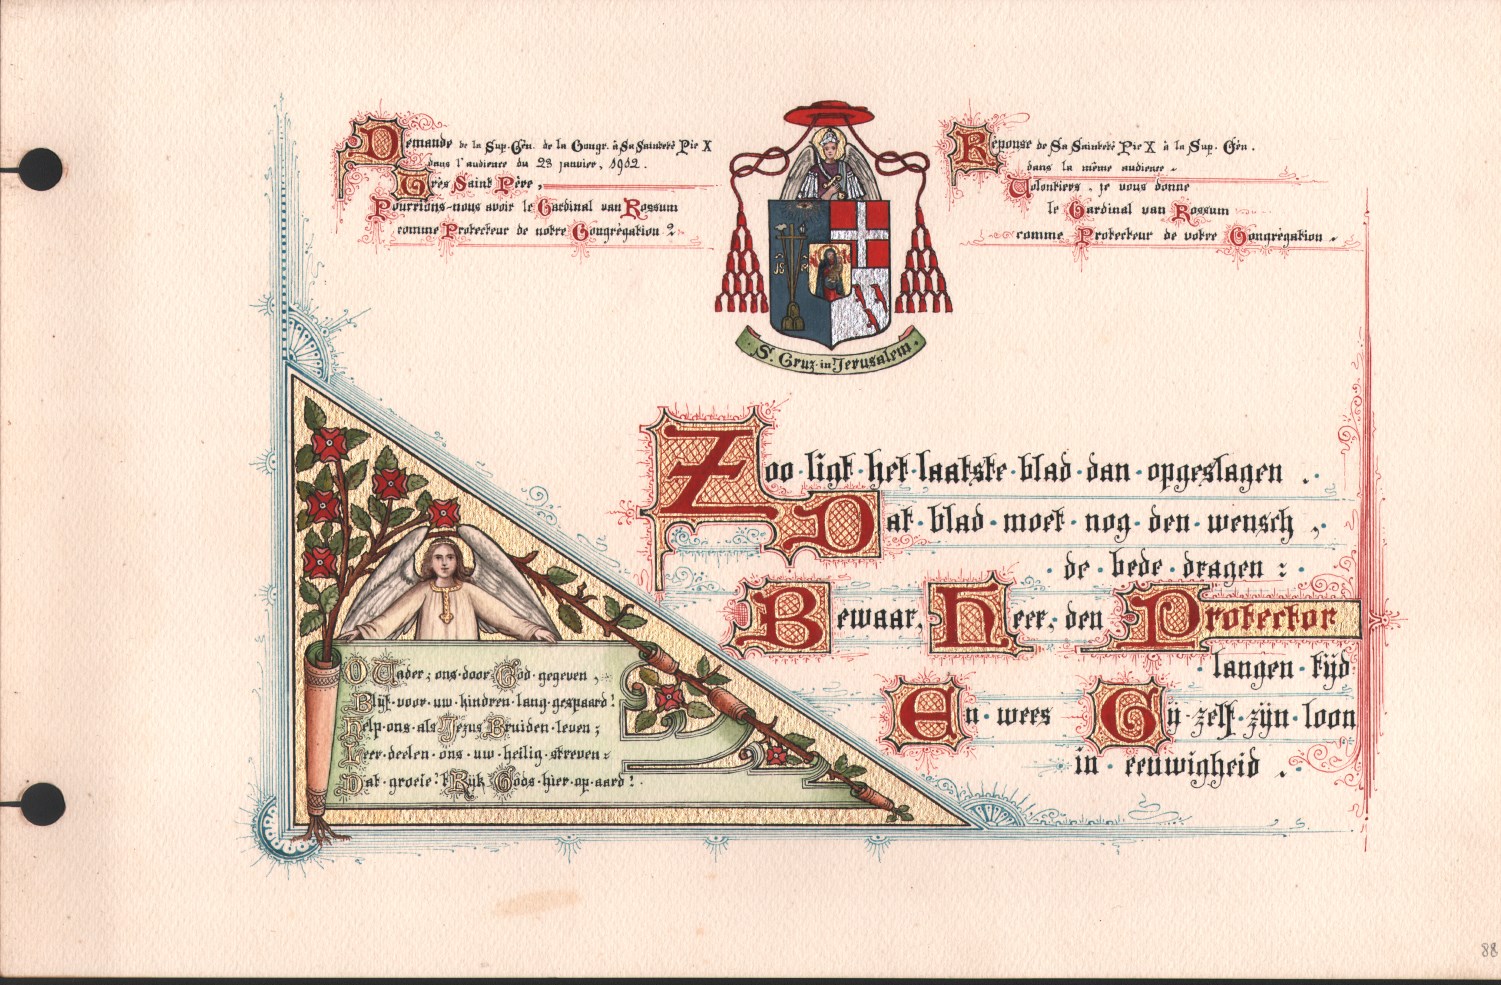 Demande de la Sup. Gén. de la Congr. à Sa Sainteté Pie X
dans l'audience du 28 janvier, 1912.
Très Saint Père,
Pourrions-nous avoir le Cardinal van Rossum
comme Protecteur de notre Congrégation ?
Réponse de Sa Sainteté Pie X à la Sup. Gén.
dans la même audience.
Volontiers, je vous donne
le Cardinal van Rossum
comme Protecteur de votre Congrégation.
S. Cruz in Jerusalem.
Zoo ligt het laatste blad dan opgeslagen.
Dat blad moet nog den wensch,
de bede dragen:
Bewaar, Heer, den Protector
langen tijd
En wees Gij zelf zijn loon
in eeuwigheid.
O Vader, ons door God gegeven,
Blijf voor uw kinderen lang gespaard!
Help ons als Jezus Bruiden leven;
Leer deelen ons uw heilig streven:
Dat groeie 't Rijk Gods hier op aard!
88